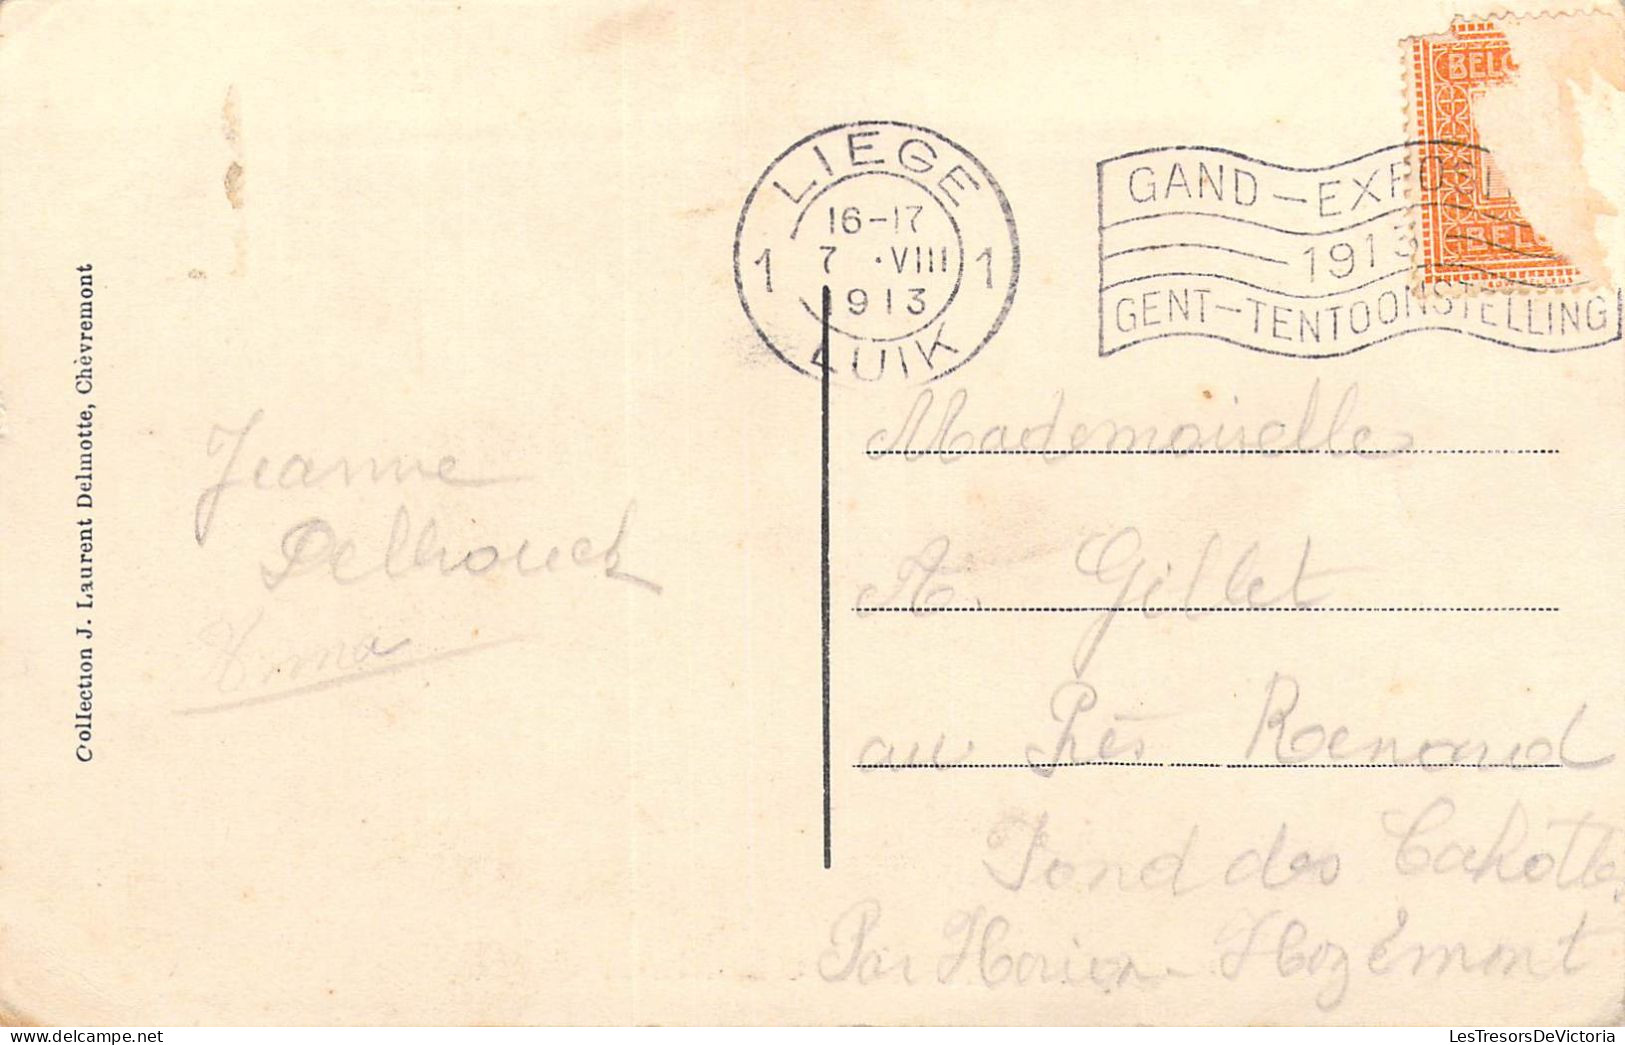 Collection J. Laurent Delmotte, Chèvremont
LIEGE
1 16-17 1
7 .VIII
1913
LUIK
GAND-EXPO
1913
GENT-TENTOONSTELLING
BELG
BELG
Jeanne
Delbrouck
Irma
Mademoiselle
A. Gillet
au Prés Renard
Fond des Cahottes
Par Horion-Hozémont
LesTresorsDeVictoria